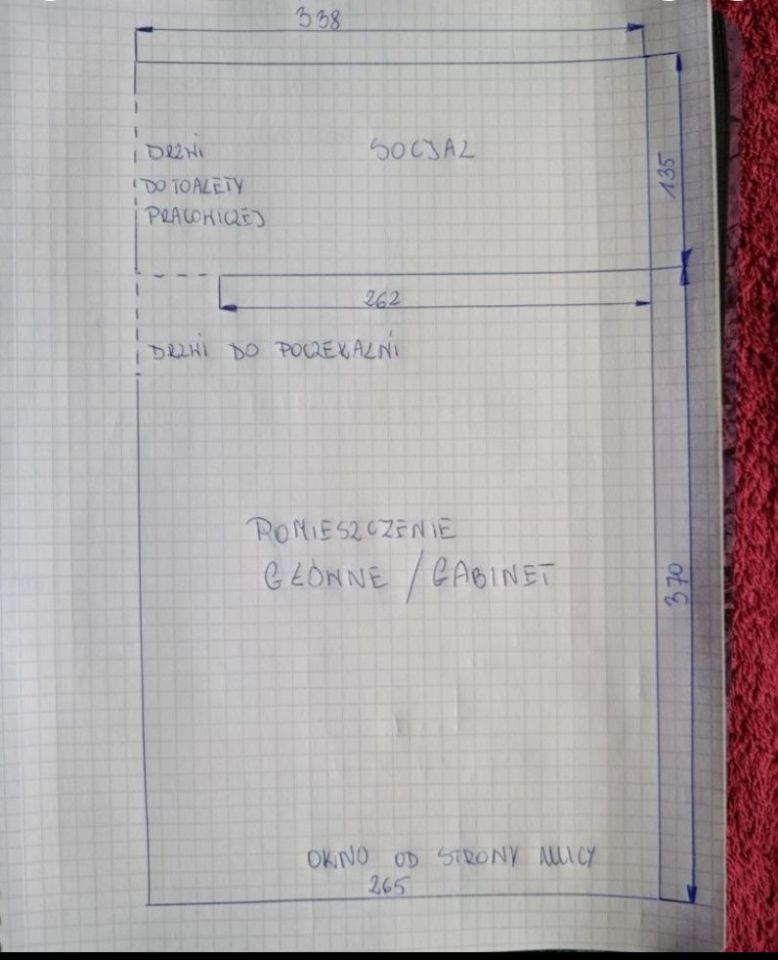 338
DRZWI
SOCJAL
135
DO TOALETY
PRACOWICZEJ
262
DRZWI DO POCZEKALNI
POMIESZCZENIE
GŁÓWNE / GABINET
370
OKNO OD STRONY ULICY
265